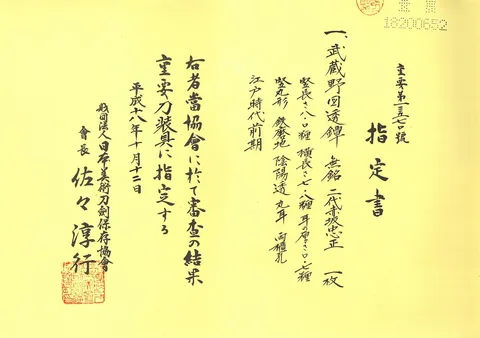 18200652
指定書
一、武蔵野図透鐔 無銘 二代赤坂忠正 一枚
竪長さ八・〇糎 横長さ七・八糎 耳の厚さ〇・七糎
竪丸形 鉄磨地 陰陽透 丸耳 両櫃孔
江戸時代前期
右者當協會に於て審査の結果
重要刀装具に指定する
平成十八年十月十二日
財団法人日本美術刀剣保存協會
會長 佐々淳行